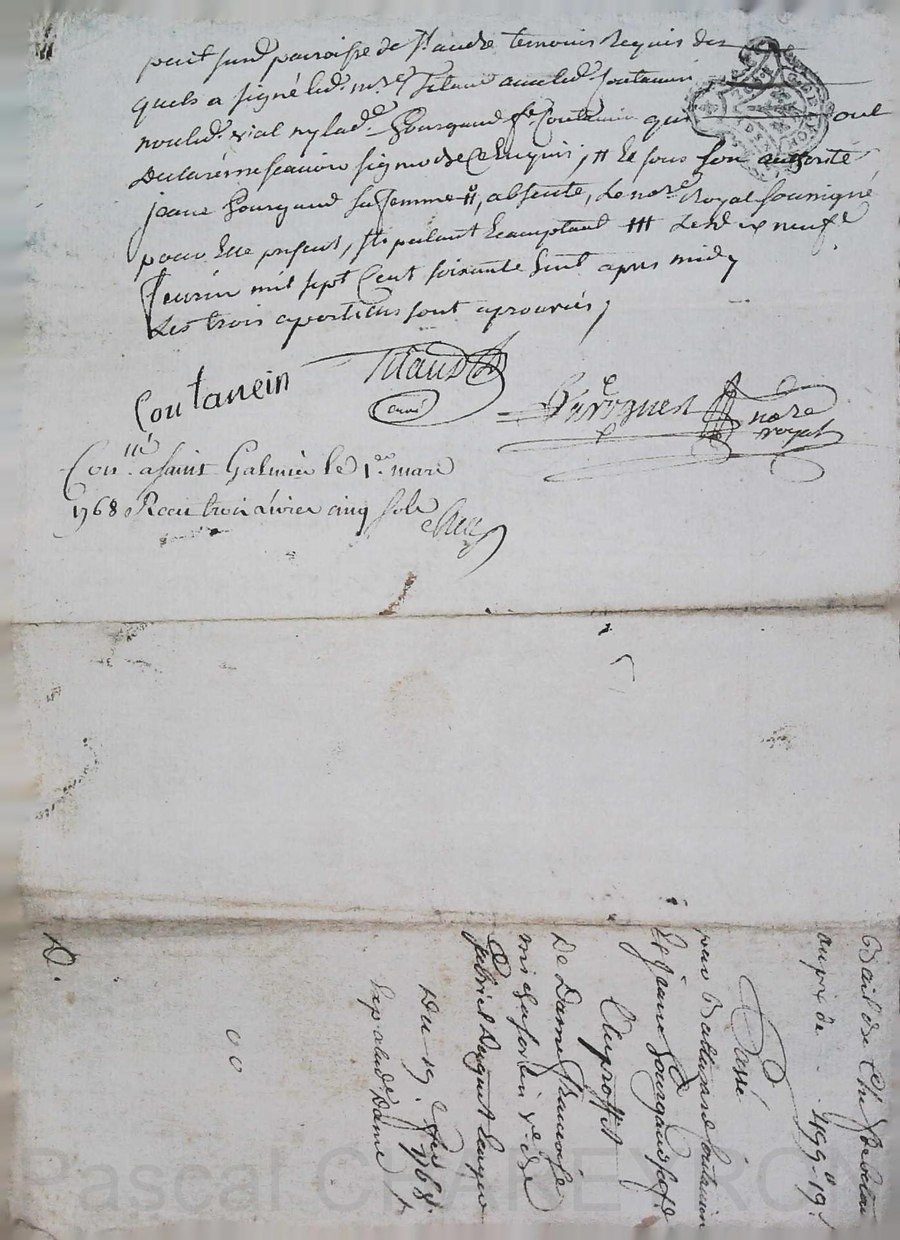 paroisse de St andré temoins Requis des
quels a signé led. mre Titaud avec led. Coutanein
non led. vial ny lad. Gourgaud fe Coutanein qui ont
Declaré ne scavoir signer de ce Enquis, # Et sous son authorité
jeane Gourgaud sa femme #, absente, Le nore Royal soussigné
pour Elle present, stipulant Et acceptant ### Le dix neufe
feurier mil sept Cent soixante huit apres midy
Les trois apostilles sont aprouvées,
Coutanein
Titaud
curé
nore
royal
Conllé a saint Galmier le 1er mars
1768 Recu trois livres cinq sols
Bail de
au prix de - 499lt 19s
Passé
par Balthazard Coutanein
Et jeane Gourgaud sa fe
Au proffit
De Dame francoise
ve de
Gabriel
Du 19 fer 1768
Exp a lad. Dame
D.
Pascal CHAREYRON